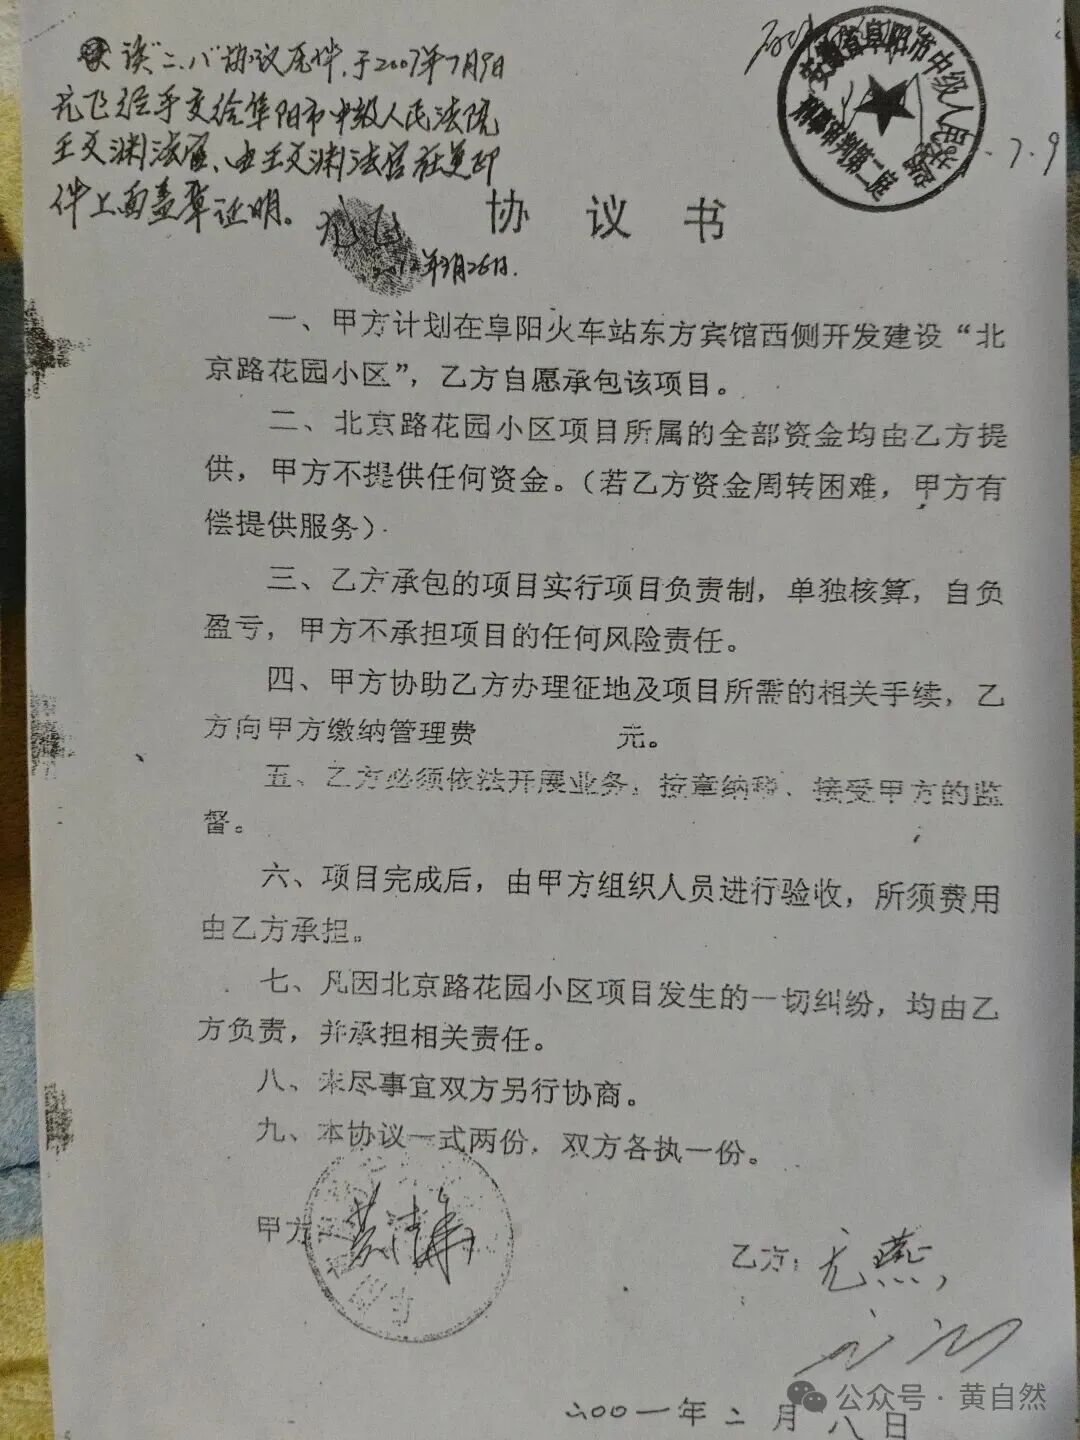 该"二、八"协议原件，于2007年7月9日
亢飞经手交给阜阳市中级人民法院
王文渊法官、由王文渊法官在复印
件上面盖章证明。亢飞
年3月26日.
安徽省阜阳市中级人民法院
7.9
协议书
一、甲方计划在阜阳火车站东方宾馆西侧开发建设“北
京路花园小区”，乙方自愿承包该项目。
二、北京路花园小区项目所属的全部资金均由乙方提
供，甲方不提供任何资金。（若乙方资金周转困难，甲方有
偿提供服务）.
三、乙方承包的项目实行项目负责制，单独核算，自负
盈亏，甲方不承担项目的任何风险责任。
四、甲方协助乙方办理征地及项目所需的相关手续，乙
方向甲方缴纳管理费 元。
五、乙方必须依法开展业务，按章纳税、接受甲方的监
督。
六、项目完成后，由甲方组织人员进行验收，所须费用
由乙方承担。
七、凡因北京路花园小区项目发生的一切纠纷，均由乙
方负责，并承担相关责任。
八、未尽事宜双方另行协商。
九、本协议一式两份，双方各执一份。
甲方
乙方：亢燕，
二00一年二月八日
公众号·黄自然